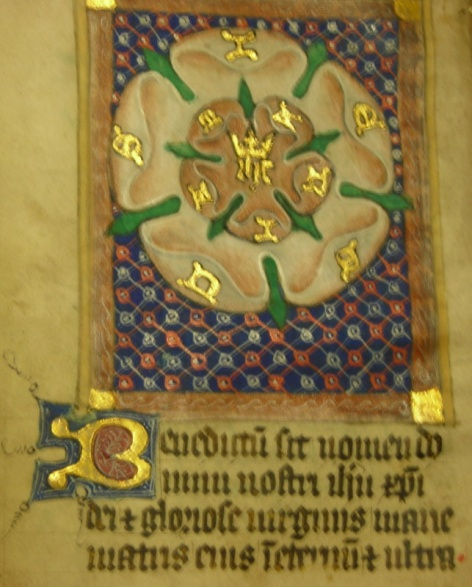 Benedictū sit nomen do
mini nostri ihu xpi
dei ⁊ gloriose virginis marie
matris eius ī eternū ⁊ ultra